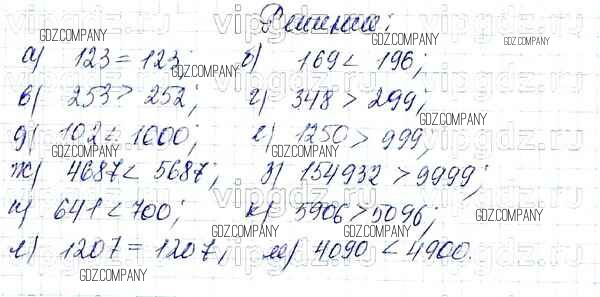 Решение:
а) 123 = 123; б) 169 < 196;
в) 253 > 252; г) 348 > 299;
д) 102 < 1000; е) 1250 > 999;
ж) 4687 < 5687; з) 154932 > 9999;
и) 641 < 700; к) 5906 > 5096;
л) 1207 = 1207; м) 4090 < 4900.
GDZ.COMPANY
vipgdz.ru